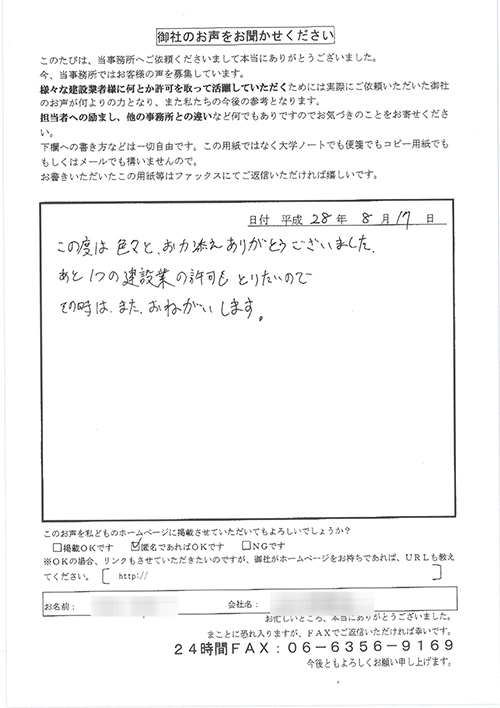 御社のお声をお聞かせください
このたびは、当事務所へご依頼くださいまして本当にありがとうございました。
今、当事務所ではお客様の声を募集しています。
様々な建設業者様に何とか許可を取って活躍していただくためには実際にご依頼いただいた御社
のお声が何よりの力となり、また私たちの今後の参考となります。
担当者への励まし、他の事務所との違いなど何でもありですのでお気づきのことをお寄せくださ
い。
下欄への書き方などは一切自由です。この用紙ではなく大学ノートでも便箋でもコピー用紙でも
もしくはメールでも構いませんので。
お書きいただいたこの用紙等はファックスにてご返信いただければ嬉しいです。
日付 平成 28 年 8 月 17 日
この度は色々と、お力添えありがとうございました。
あと1つの建設業の許可も とりたいので
その時は、また、おねがいします。
このお声を私どものホームページに掲載させていただいてもよろしいでしょうか?
□掲載OKです ☑匿名であればOKです □NGです
※OKの場合、リンクもさせていただきたいのですが、御社がホームページをお持ちであれば、URLも教え
てください。 〔 http:// 〕
お名前: 会社名:
お忙しいところ、本当にありがとうございました。
まことに恐れ入りますが、FAXでご返信いただければ幸いです。
24時間FAX:06-6356-9169
今後ともよろしくお願い申し上げます。